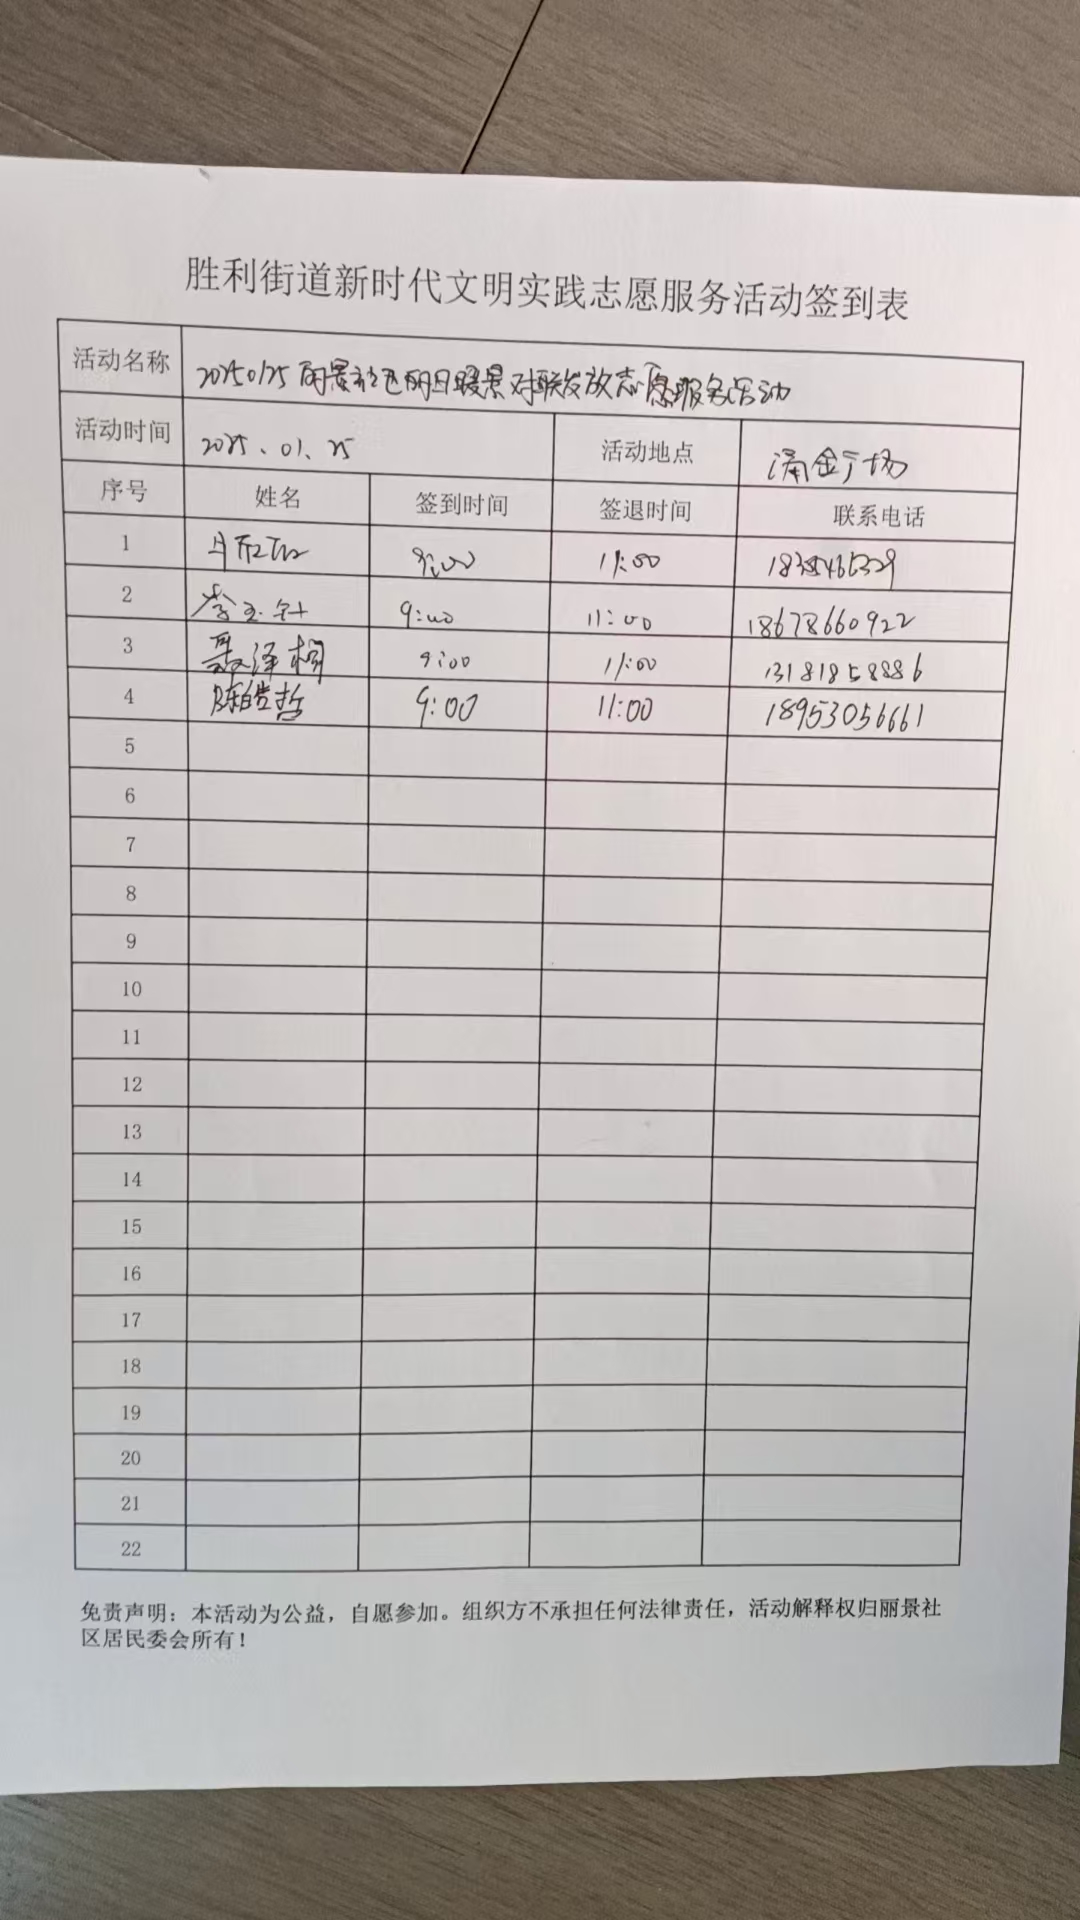 胜利街道新时代文明实践志愿服务活动签到表
活动名称 20250125丽景社区明日暖景对联发放志愿服务活动
活动时间 2025.01.25 活动地点 涌金广场
序号 姓名 签到时间 签退时间 联系电话
1 9:00 11:00
2 9:00 11:00 18678660922
3 聂泽桐 9:00 11:00 13181858886
4 陈皓哲 9:00 11:00 18953056661
5
6
7
8
9
10
11
12
13
14
15
16
17
18
19
20
21
22
免责声明：本活动为公益，自愿参加。组织方不承担任何法律责任，活动解释权归丽景社
区居民委会所有！